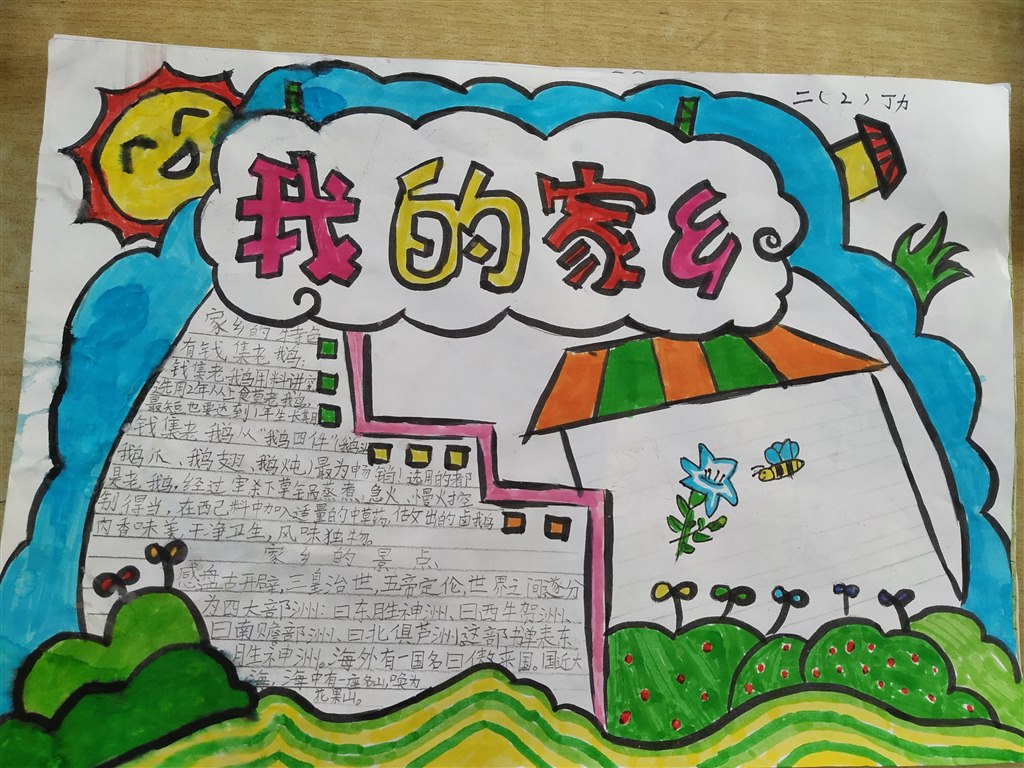 二(2)丁力
我的家乡
家乡的特色
有钱集老鹅。
钱集老鹅用料讲究
选用2年以上草老鹅
最短也要达到1年生长期
钱集老鹅从“鹅四件”(鹅
鹅爪、鹅翅、鹅炖)最为中物销!选用的都
是老鹅,经过宰杀下草
蒸煮、急火、慢火控
制得当,在西己料中加入适量的中草药,做出的卤鹅
肉香味美,干净卫生,风味独物。
家乡的景点
感盘古开辟,三皇治世,五帝定伦,世界之间遂分
为四大部洲:曰东胜神洲、曰西牛贺洲、
曰南赡部洲、曰北俱芦洲。这部书单表东
胜神洲。海外有一国名曰傲来国。国近大
海,海中有一座名山,唤为
花果山。